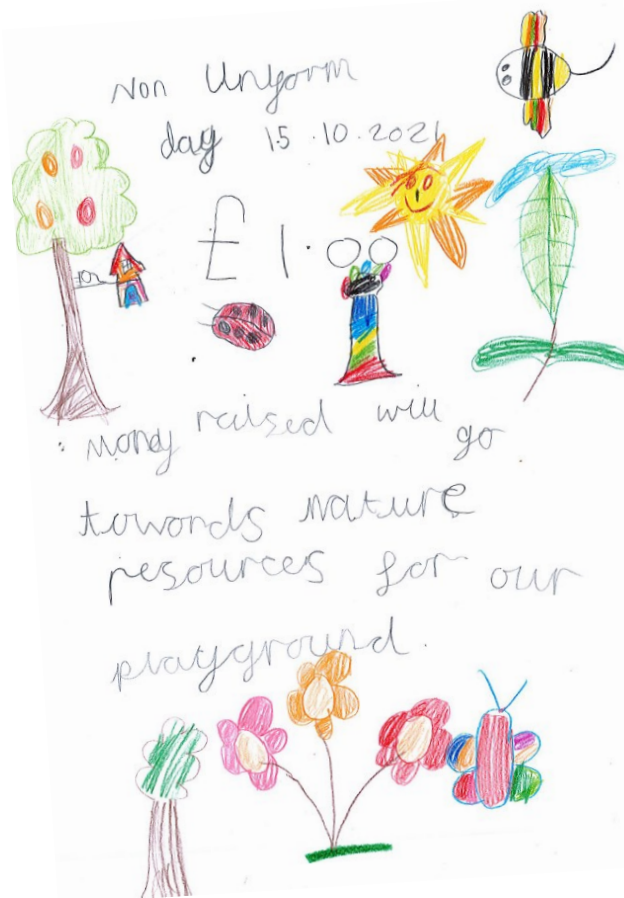 Non Unyorm
day 15.10.2021
£1.00
Mony raised will go
towards nature
resources for our
playground.